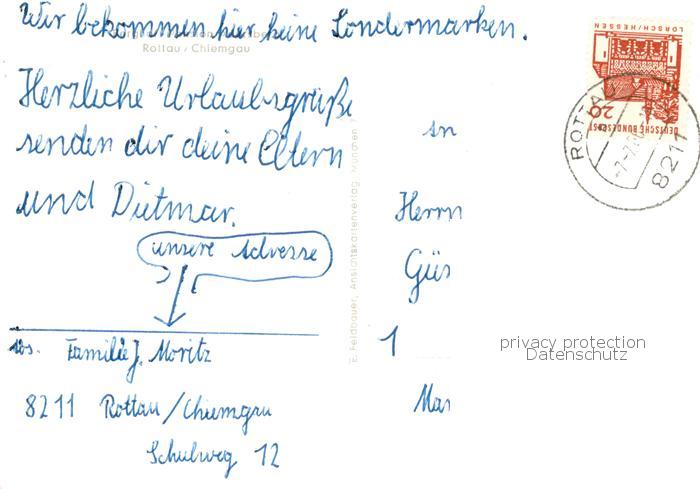 Wir bekommen hier keine Sondermarken.
Rottau / Chiemgau
Herzliche Urlaubsgrüße
senden dir deine Eltern
und Dietmar.
unsere Adresse
Abs. Familie J. Moritz
8211 Rottau/Chiemgau
Schulweg 12
E. Feldbauer, Ansichtskartenverlag, München
An
Herrn
Gü
1
Ma
LORSCH/HESSEN
20
DEUTSCHE BUNDESPOST
ROTTA
8211
privacy protection
Datenschutz